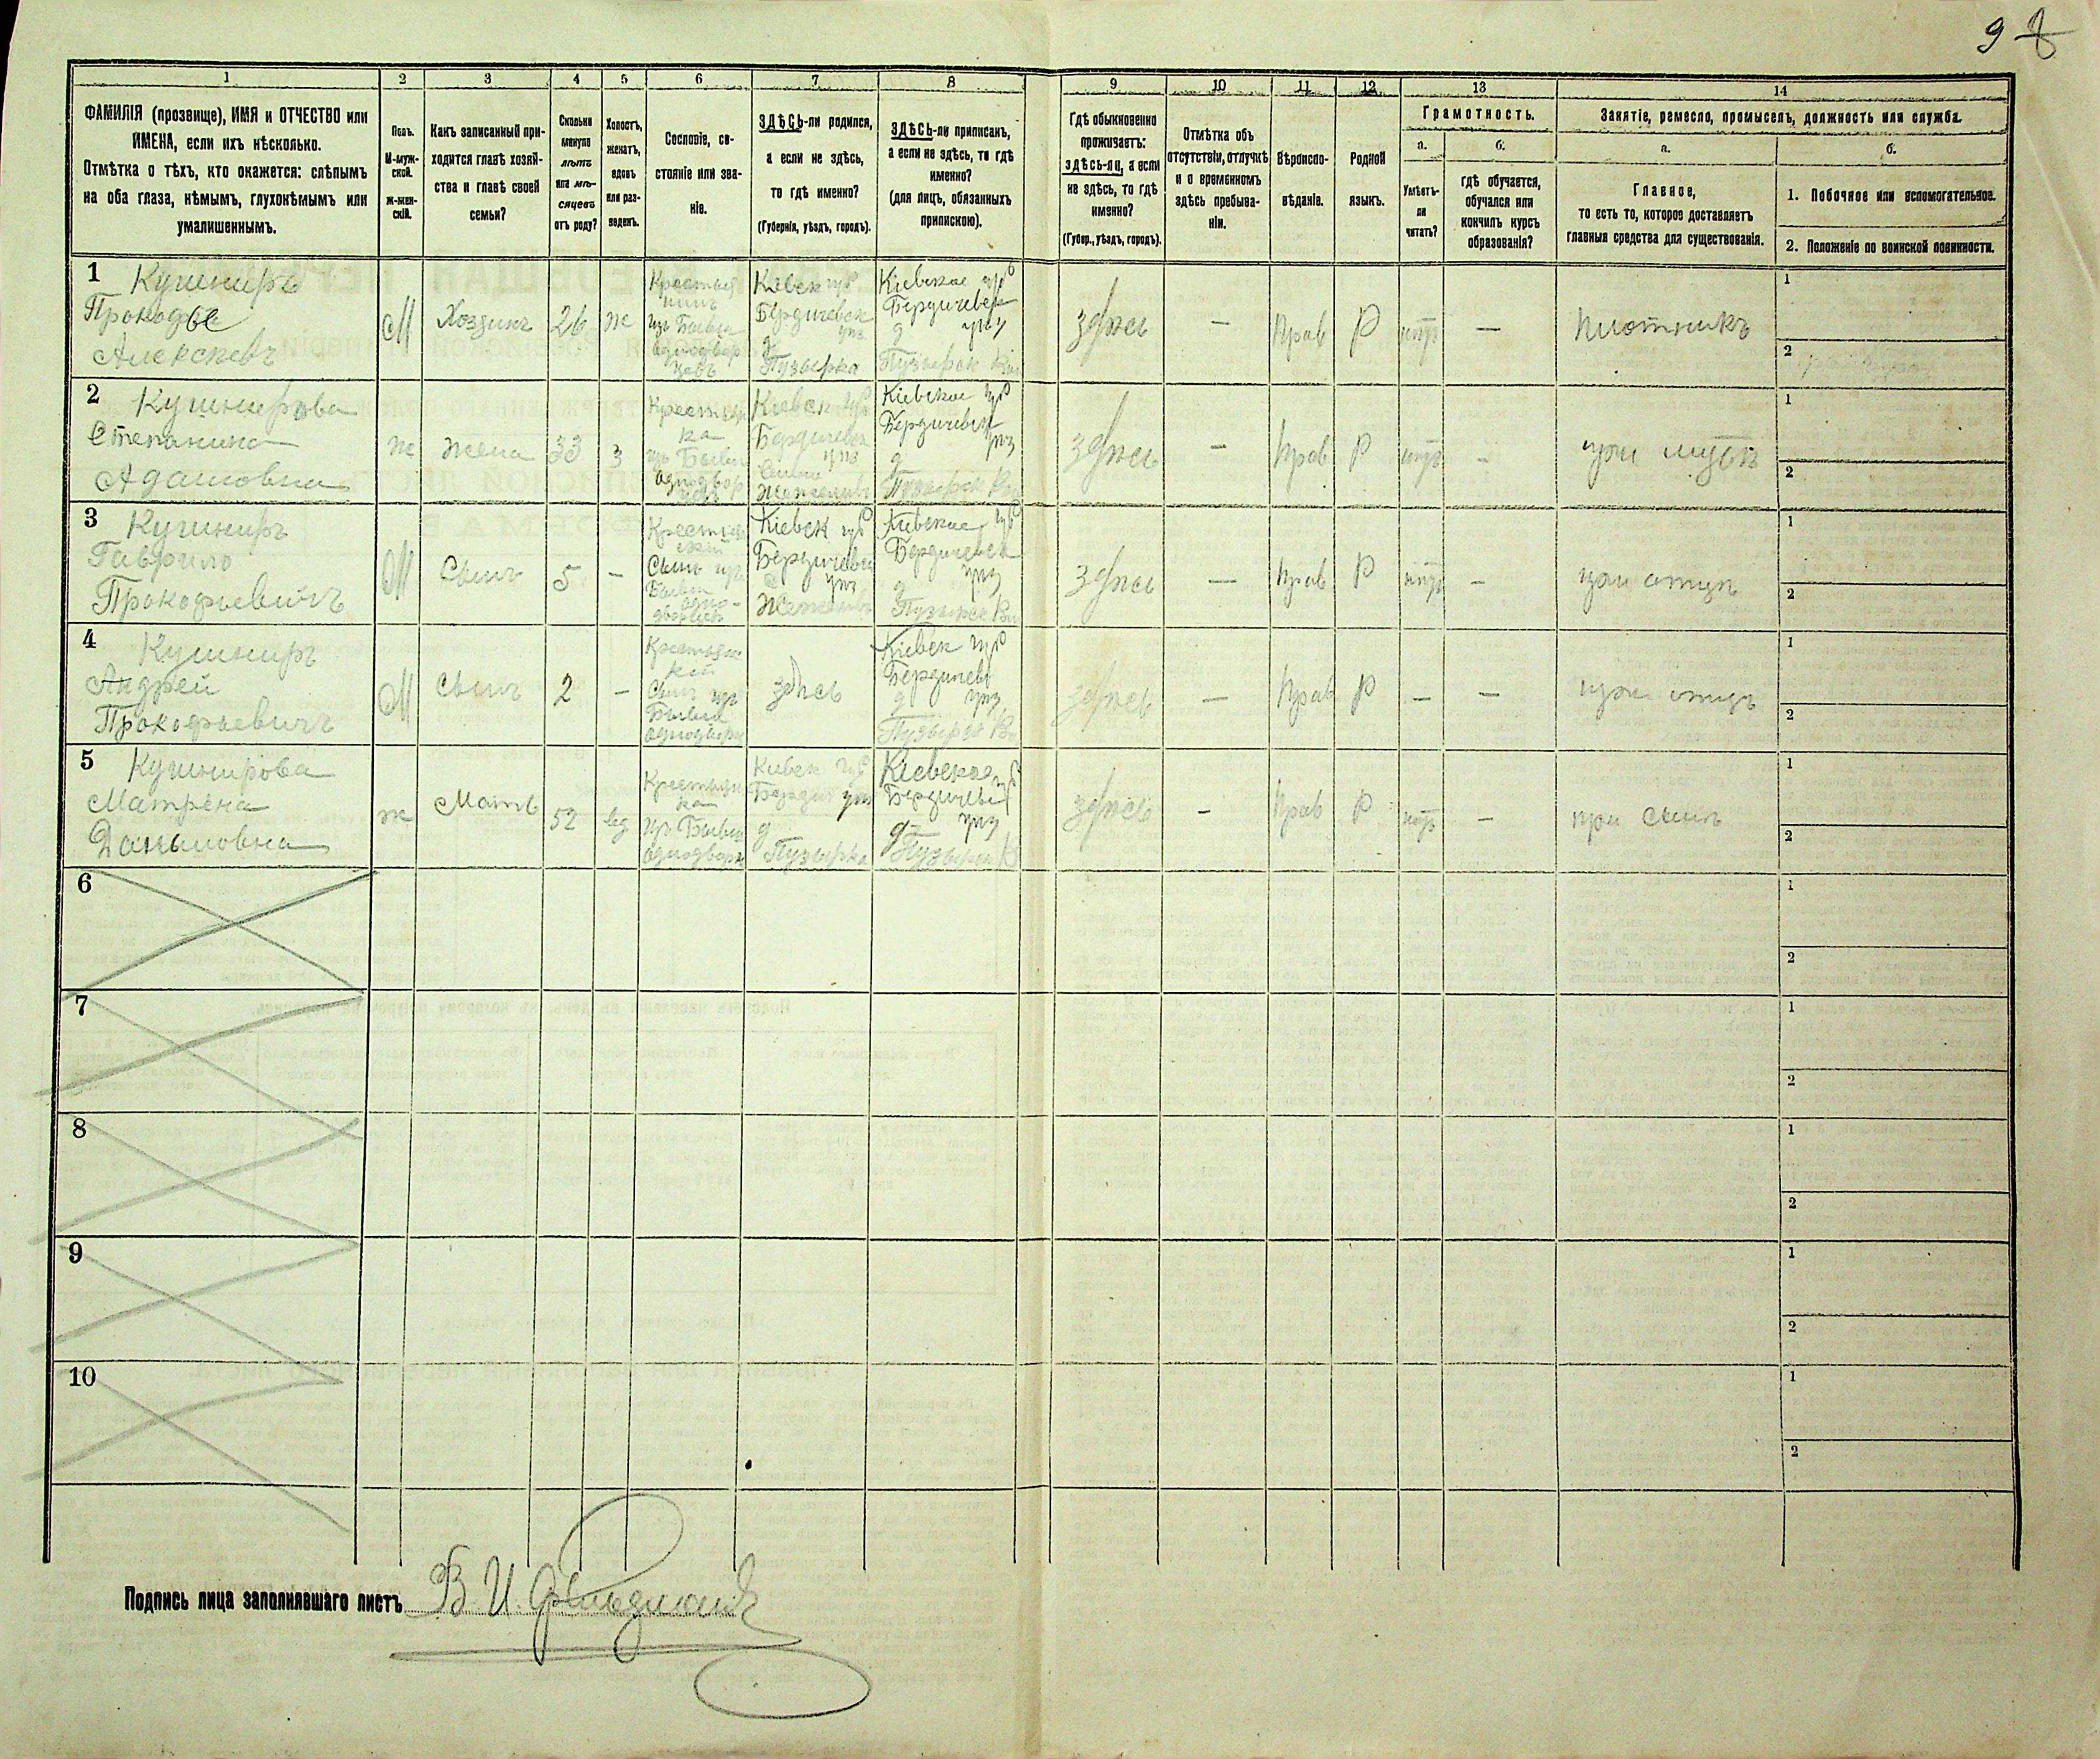 9 8
1 2 3 4 5 6 7 8 9 10 11 12 13 14
ФАМИЛІЯ (прозвище), ИМЯ и ОТЧЕСТВО или
ИМЕНА, если ихъ нѣсколько.
Отмѣтка о тѣхъ, кто окажется: слѣпымъ
на оба глаза, нѣмымъ, глухонѣмымъ или
умалишеннымъ.
Полъ.
М-муж-
ской.
ж-жен-
скій.
Какъ записанный при-
ходится главѣ хозяй-
ства и главѣ своей
семьи?
Сколько
минуло
лѣтъ
или мѣ-
сяцевъ
отъ роду?
Холостъ,
женатъ,
вдовъ
или раз-
веденъ.
Сословіе, со-
стояніе или зва-
ніе.
ЗДѢСЬ-ли родился,
а если не здѣсь,
то гдѣ именно?
(Губернія, уѣздъ, городъ).
ЗДѢСЬ-ли приписанъ,
а если не здѣсь, то гдѣ
именно?
(для лицъ, обязанныхъ
припискою).
Гдѣ обыкновенно
проживаетъ:
здѣсь-ли, а если
не здѣсь, то гдѣ
именно?
(Губер., уѣздъ, городъ).
Отмѣтка объ
отсутствіи, отлучкѣ
и о временномъ
здѣсь пребыва-
ніи.
Вѣроиспо-
вѣданіе.
Родной
языкъ.
Грамотность.
а.
Умѣетъ-
ли
читать?
б.
гдѣ обучается,
обучался или
кончилъ курсъ
образованія?
Занятіе, ремесло, промыселъ, должность или служба.
а.
Главное,
то есть то, которое доставляетъ
главныя средства для существованія.
б.
1. Побочное или вспомогательное.
2. Положеніе по воинской повинности.
1 Кушниръ
Прокофье
Алексѣевъ
М
Хозяинъ
26
ж
Крестья
нинъ
изъ Бывш
однодвор
цевъ
Кіевск губ
Бердичевск
уѣз
д
Пузырка
Кіевское губ
Бердичевск
д уѣз
Пузырск
здѣсь
—
Прав
Р
нѣтъ
—
плотникъ
1
2
2 Кушнирова
Степанида
Адамовна
ж
Жена
33
з
Крестьян
ка
изъ Бывш
однодвор
цевъ
Кіевск губ
Бердичевск
уѣз
Кіевское губ
Бердичевск
уѣз
д
Пузырск
здѣсь
—
Прав
Р
нѣтъ
—
при мужѣ
1
2
3 Кушниръ
Гаврило
Прокофьевичъ
М
Сынъ
5
—
Сынъ изъ
Бывш
одно-
дворцевъ
Кіевск губ
Бердичевск
уѣз
Кіевское губ
Бердичевск
уѣз
д
здѣсь
—
Прав
Р
нѣтъ
—
при отцѣ
1
2
4 Кушниръ
Андрей
Прокофьевичъ
М
Сынъ
2
—
Сынъ изъ
Бывш
здѣсь
Кіевск губ
Бердичевс
д уѣз
здѣсь
—
Прав
Р
—
—
при отцѣ
1
2
5 Кушнирова
Матрена
Даниловна
ж
Мать
52
вд
Крестьян
ка
изъ Бывш
Кіевск губ
Бердич уѣз
д
Пузырка
Кіевское губ
Бердичевс
уѣз
д
здѣсь
—
Прав
Р
нѣтъ
—
при сынѣ
1
2
6
1
2
7
1
2
8
1
2
9
1
2
10
1
2
Подпись лица заполнявшаго листъ В. И.